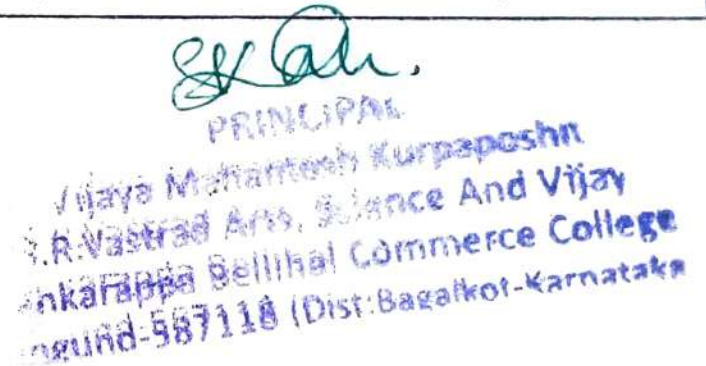 PRINCIPAL
Vijaya Mahantesh Kurpaposhit
.R.Vastrad Arts, Science And Vijay
nkarappa Bellihal Commerce College
ngund-587118 (Dist:Bagalkot-Karnataka